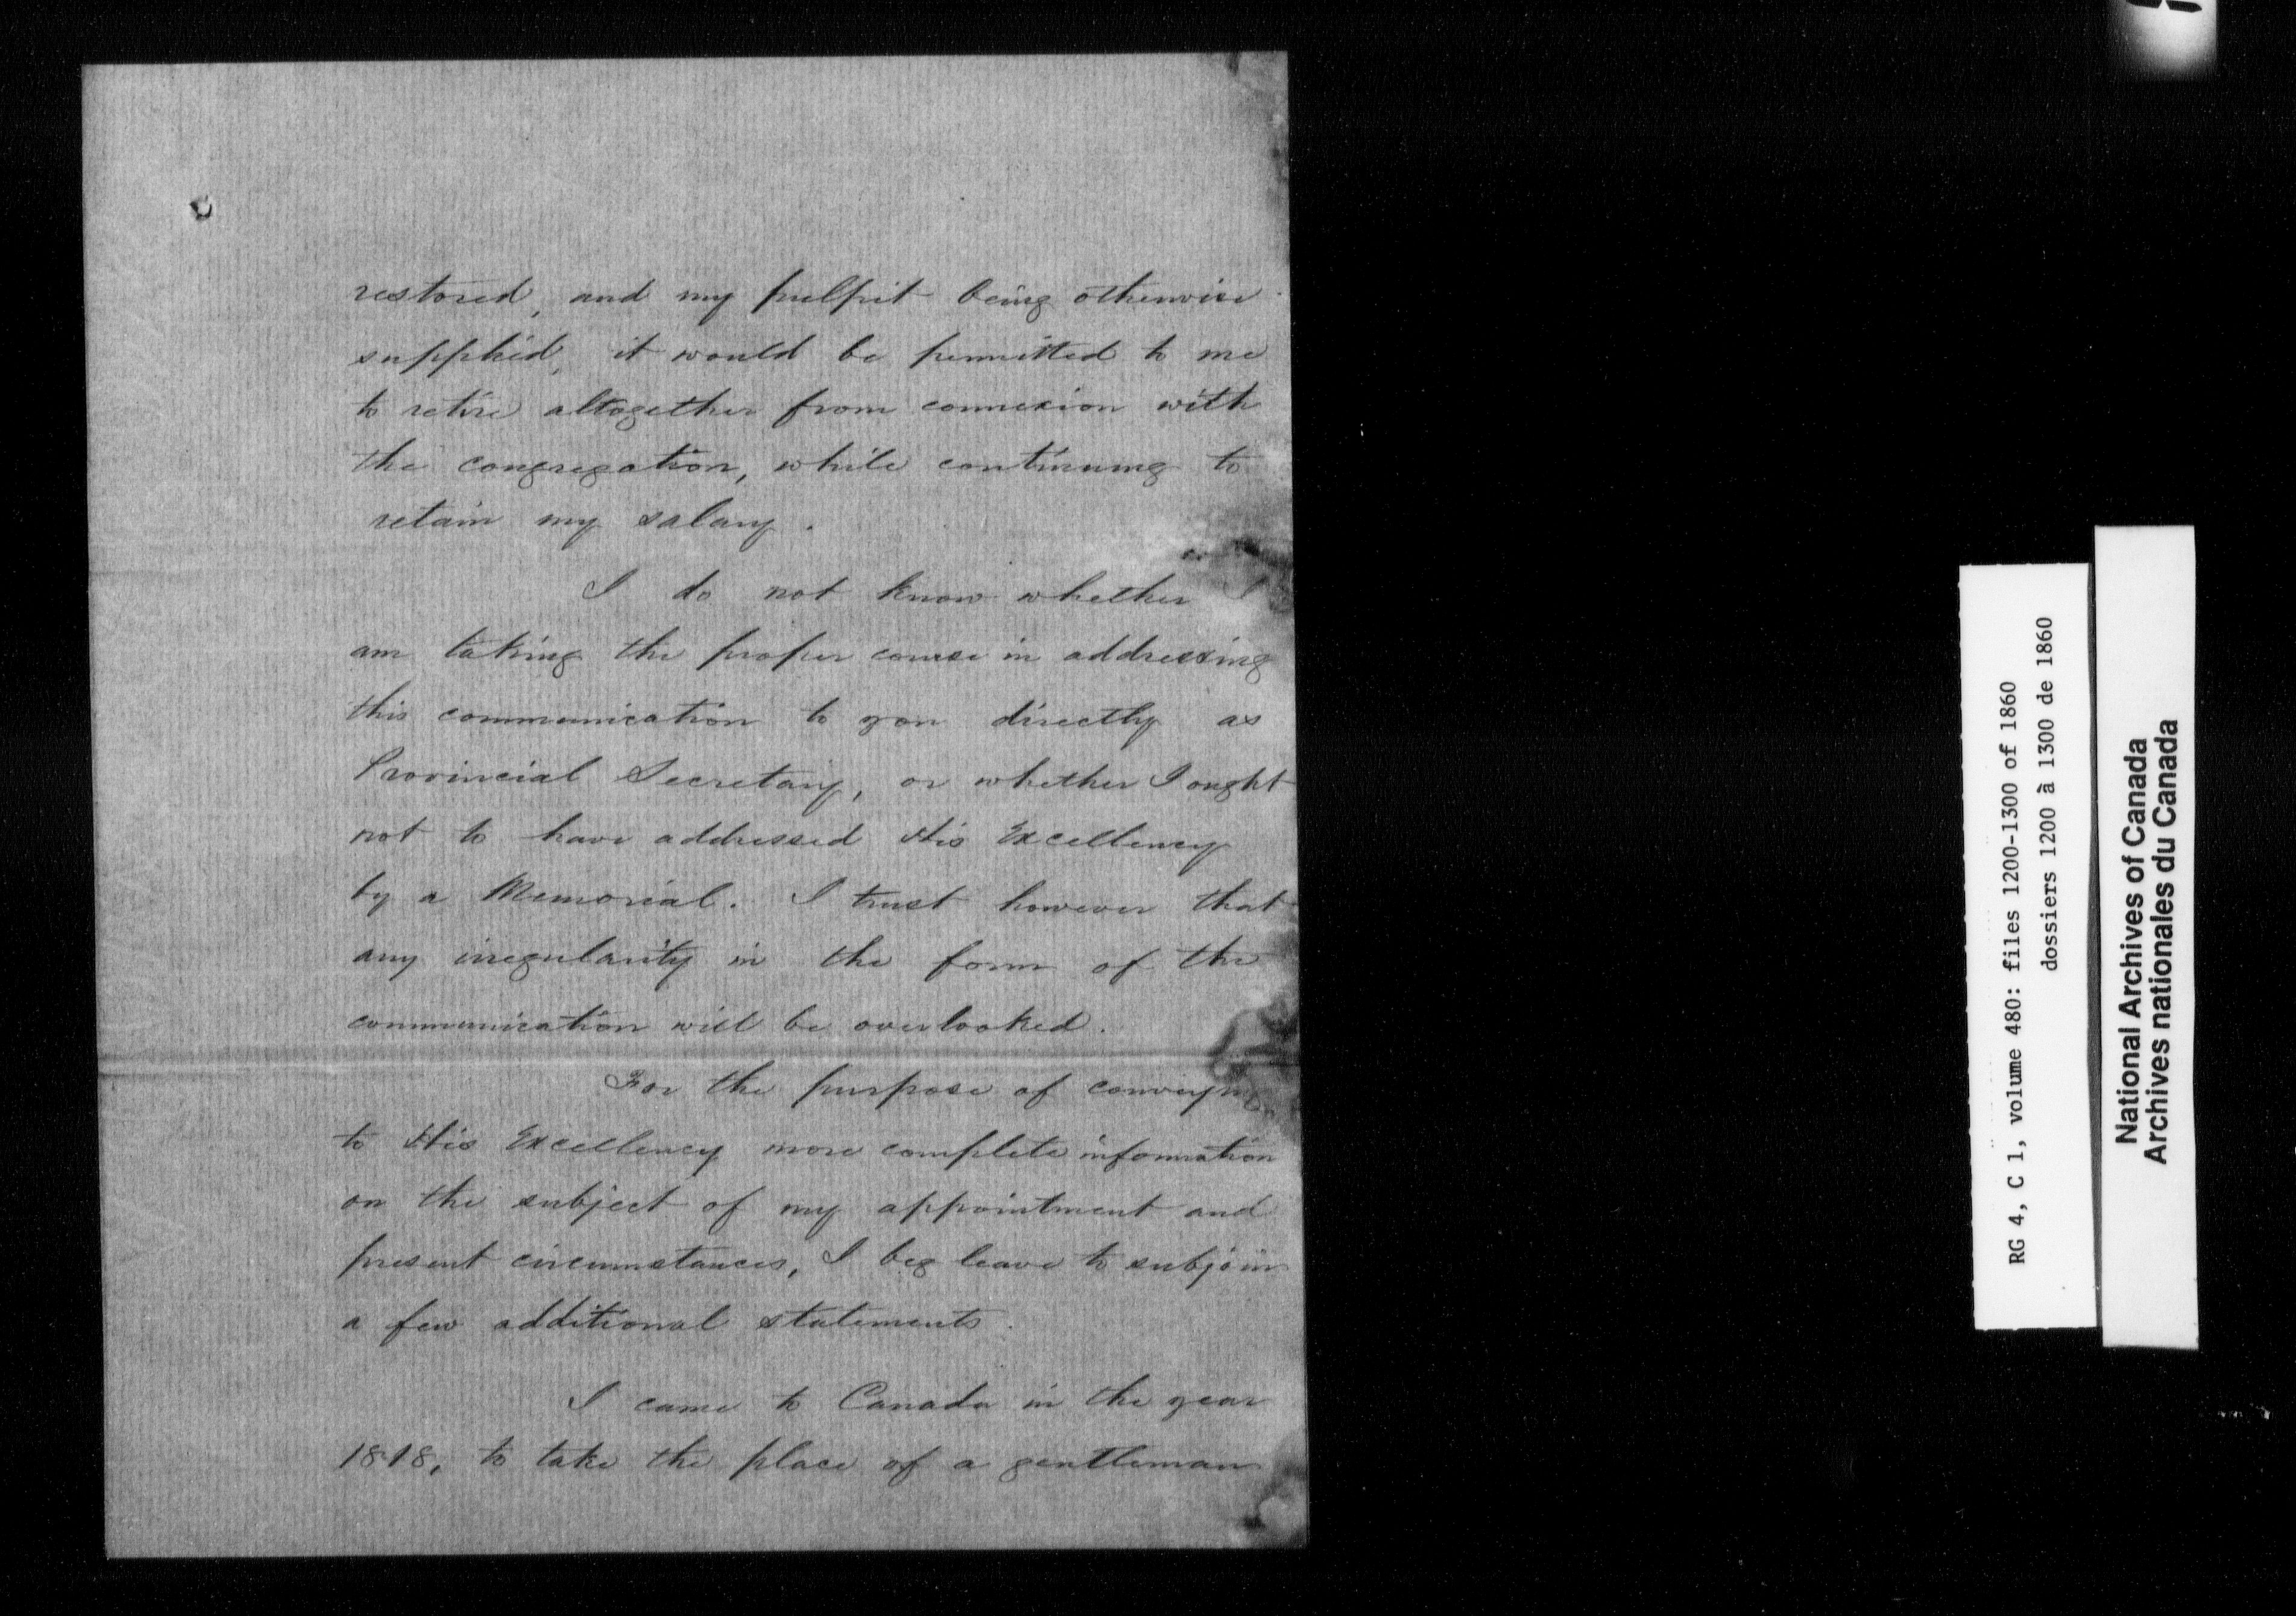 restored, and my pulpit being otherwise
supplied, it would be permitted to me
to retire altogether from connexion with
the congregation, while continuing to
retain my salary.
I do not know whether I
am taking the proper course in addressing
this communication to you directly as
Provincial Secretary, or whether I ought
not to have addressed His Excellency
by a Memorial. I trust however that
any irregularity in the form of the
communication will be overlooked.
For the purpose of conveying
to His Excellency more complete information
on the subject of my appointment and
present circumstances, I beg leave to subjoin
a few additional statements.
I came to Canada in the year
1818, to take the place of a gentleman
RG 4, C 1, volume 480: files 1200-1300 of 1860
dossiers 1200 à 1300 de 1860
National Archives of Canada
Archives nationales du Canada